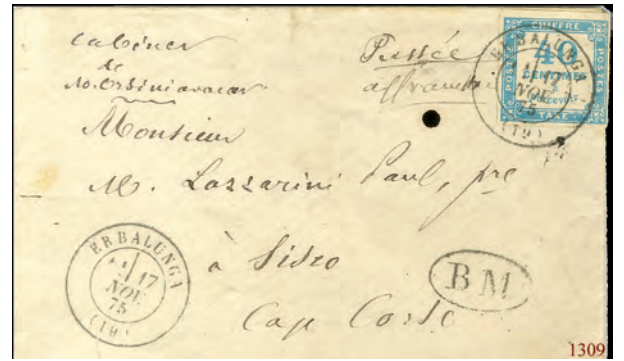 Cabinet
de
M. Orsini avocat
Passée
affranchie
CHIFFRE
POSTES
40
CENTIMES
À
PERCEVOIR
POSTES
TAXE
ERBALUNGA
17
NOV
75
(19)
Monsieur
M. Lazzarini Paul, pre
à Sisco
Cap Corse
ERBALUNGA
17
NOV
75
(19)
BM
1309